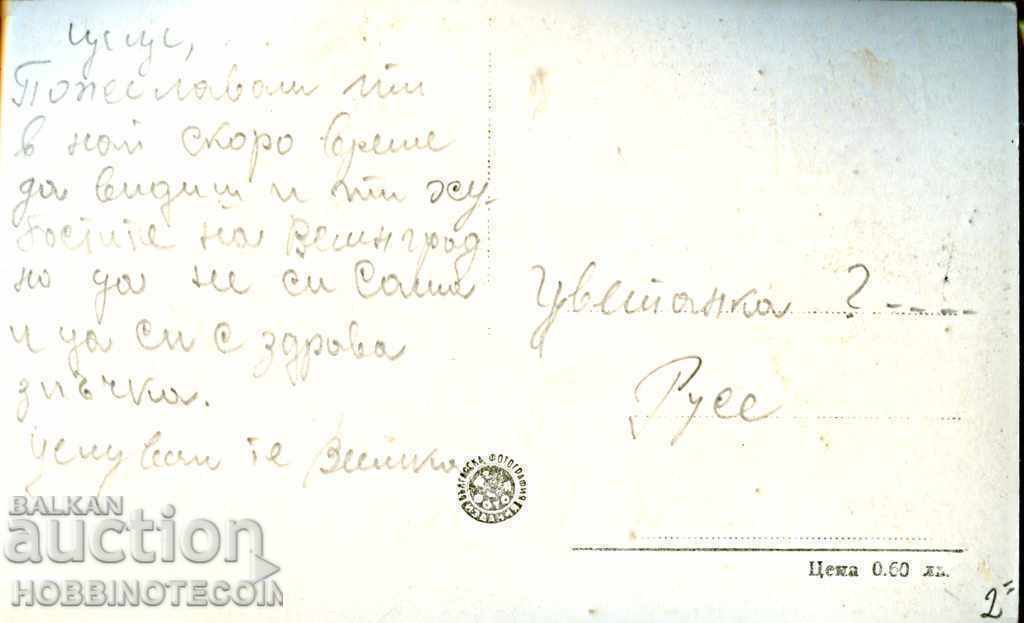 Цуцу,
Пожелавам ти
в най скоро време
да видиш и ти ху-
бостите на Велинград
но да не си сама
и да си с здрава
зпъчка.
Целувам те Вилка
Цветанка ? ----
Русе
БЪЛГАРСКА ФОТОГРАФИЯ
Цена 0.60 лв.
2"
BALKAN
auction
HOBBINOTECOIN